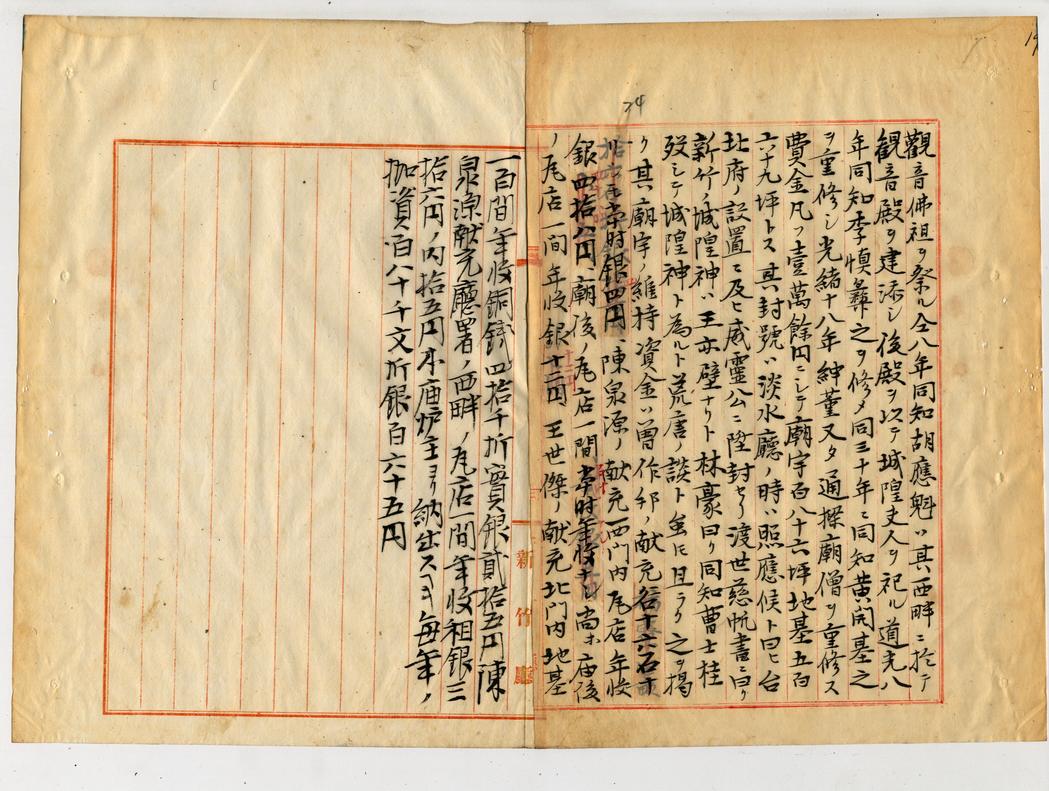 觀音佛祖ヲ祭ル仝八年同知胡應魁ハ其西畔ニ於テ
観音殿ヲ建添シ後殿ヲ以テ城隍夫人ヲ祀ル道光八
年同知李慎彝之ヲ修メ同三十年ニ同知黄開基之
ヲ重修シ光緒十八年紳董又タ通操廟僧ヲ重修ス
費金凡ソ壹萬餘円ニシテ廟宇百八十六坪地基五百
六十九坪トス其封號ハ淡水廳ノ時ハ照應候ト曰ヒ台
北府ノ設置ニ及ヒ威靈公ニ陞封セリ渡世慈帆書ニ曰ク
新竹ノ城隍神ハ王亦壁ナリト林豪曰ク同知曹士桂
歿シテ城隍神ト為ルト荒唐ノ談ト雖トモ且ラク之ヲ掲
ク其廟宇ノ維持資金ハ曽作邦ノ献充谷十六石
本時銀四円、陳泉源ノ献充西門内瓦店年收
銀四拾八円、廟後ノ瓦店一間本時年收 尚ホ庙後
ノ瓦店一間年收銀十二円王世傑ノ献充北門内地基
一百間年收銅銭四拾千折實銀貳拾五円陳
泉源献充廳署ノ西畔ノ瓦店一間年收租銀三
拾六円ノ内拾五円本庙炉主ヨリ納出スヘキ毎年ノ
捐資百八十千文折銀百六十五円
新竹廳
24